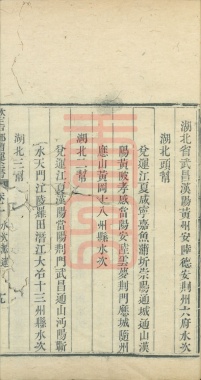 湖北省武昌漢陽黃州安陸德安荆州六府水次
湖北頭幫
兌運江夏咸寧嘉魚蒲圻崇陽通城通山漢
陽黃陂孝感當陽安陸雲夢荆門應城隨州
應山黃岡十八州縣水次
湖北二幫
兌運江夏漢陽當陽荆門武昌通山沔陽蘄
水天門江陵羅田潛江大冶十三州縣水次
湖北三幫